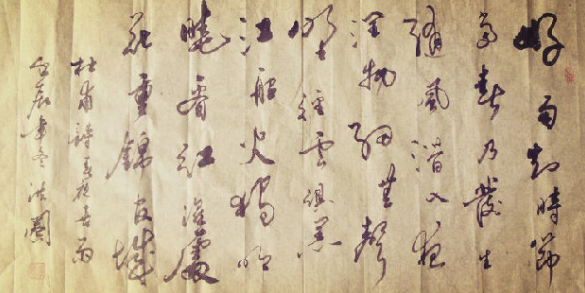 好雨知時節
當春乃發生
随風潜入夜
潤物細無聲
野徑雲俱黑
江船火獨明
曉看紅濕處
花重錦官城
杜甫詩春夜喜雨